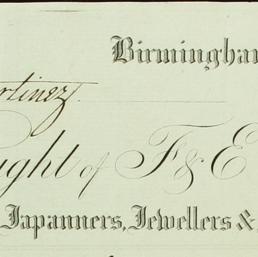 Birmingha
rtinez
ught of F & E
Japanners, Jewellers &